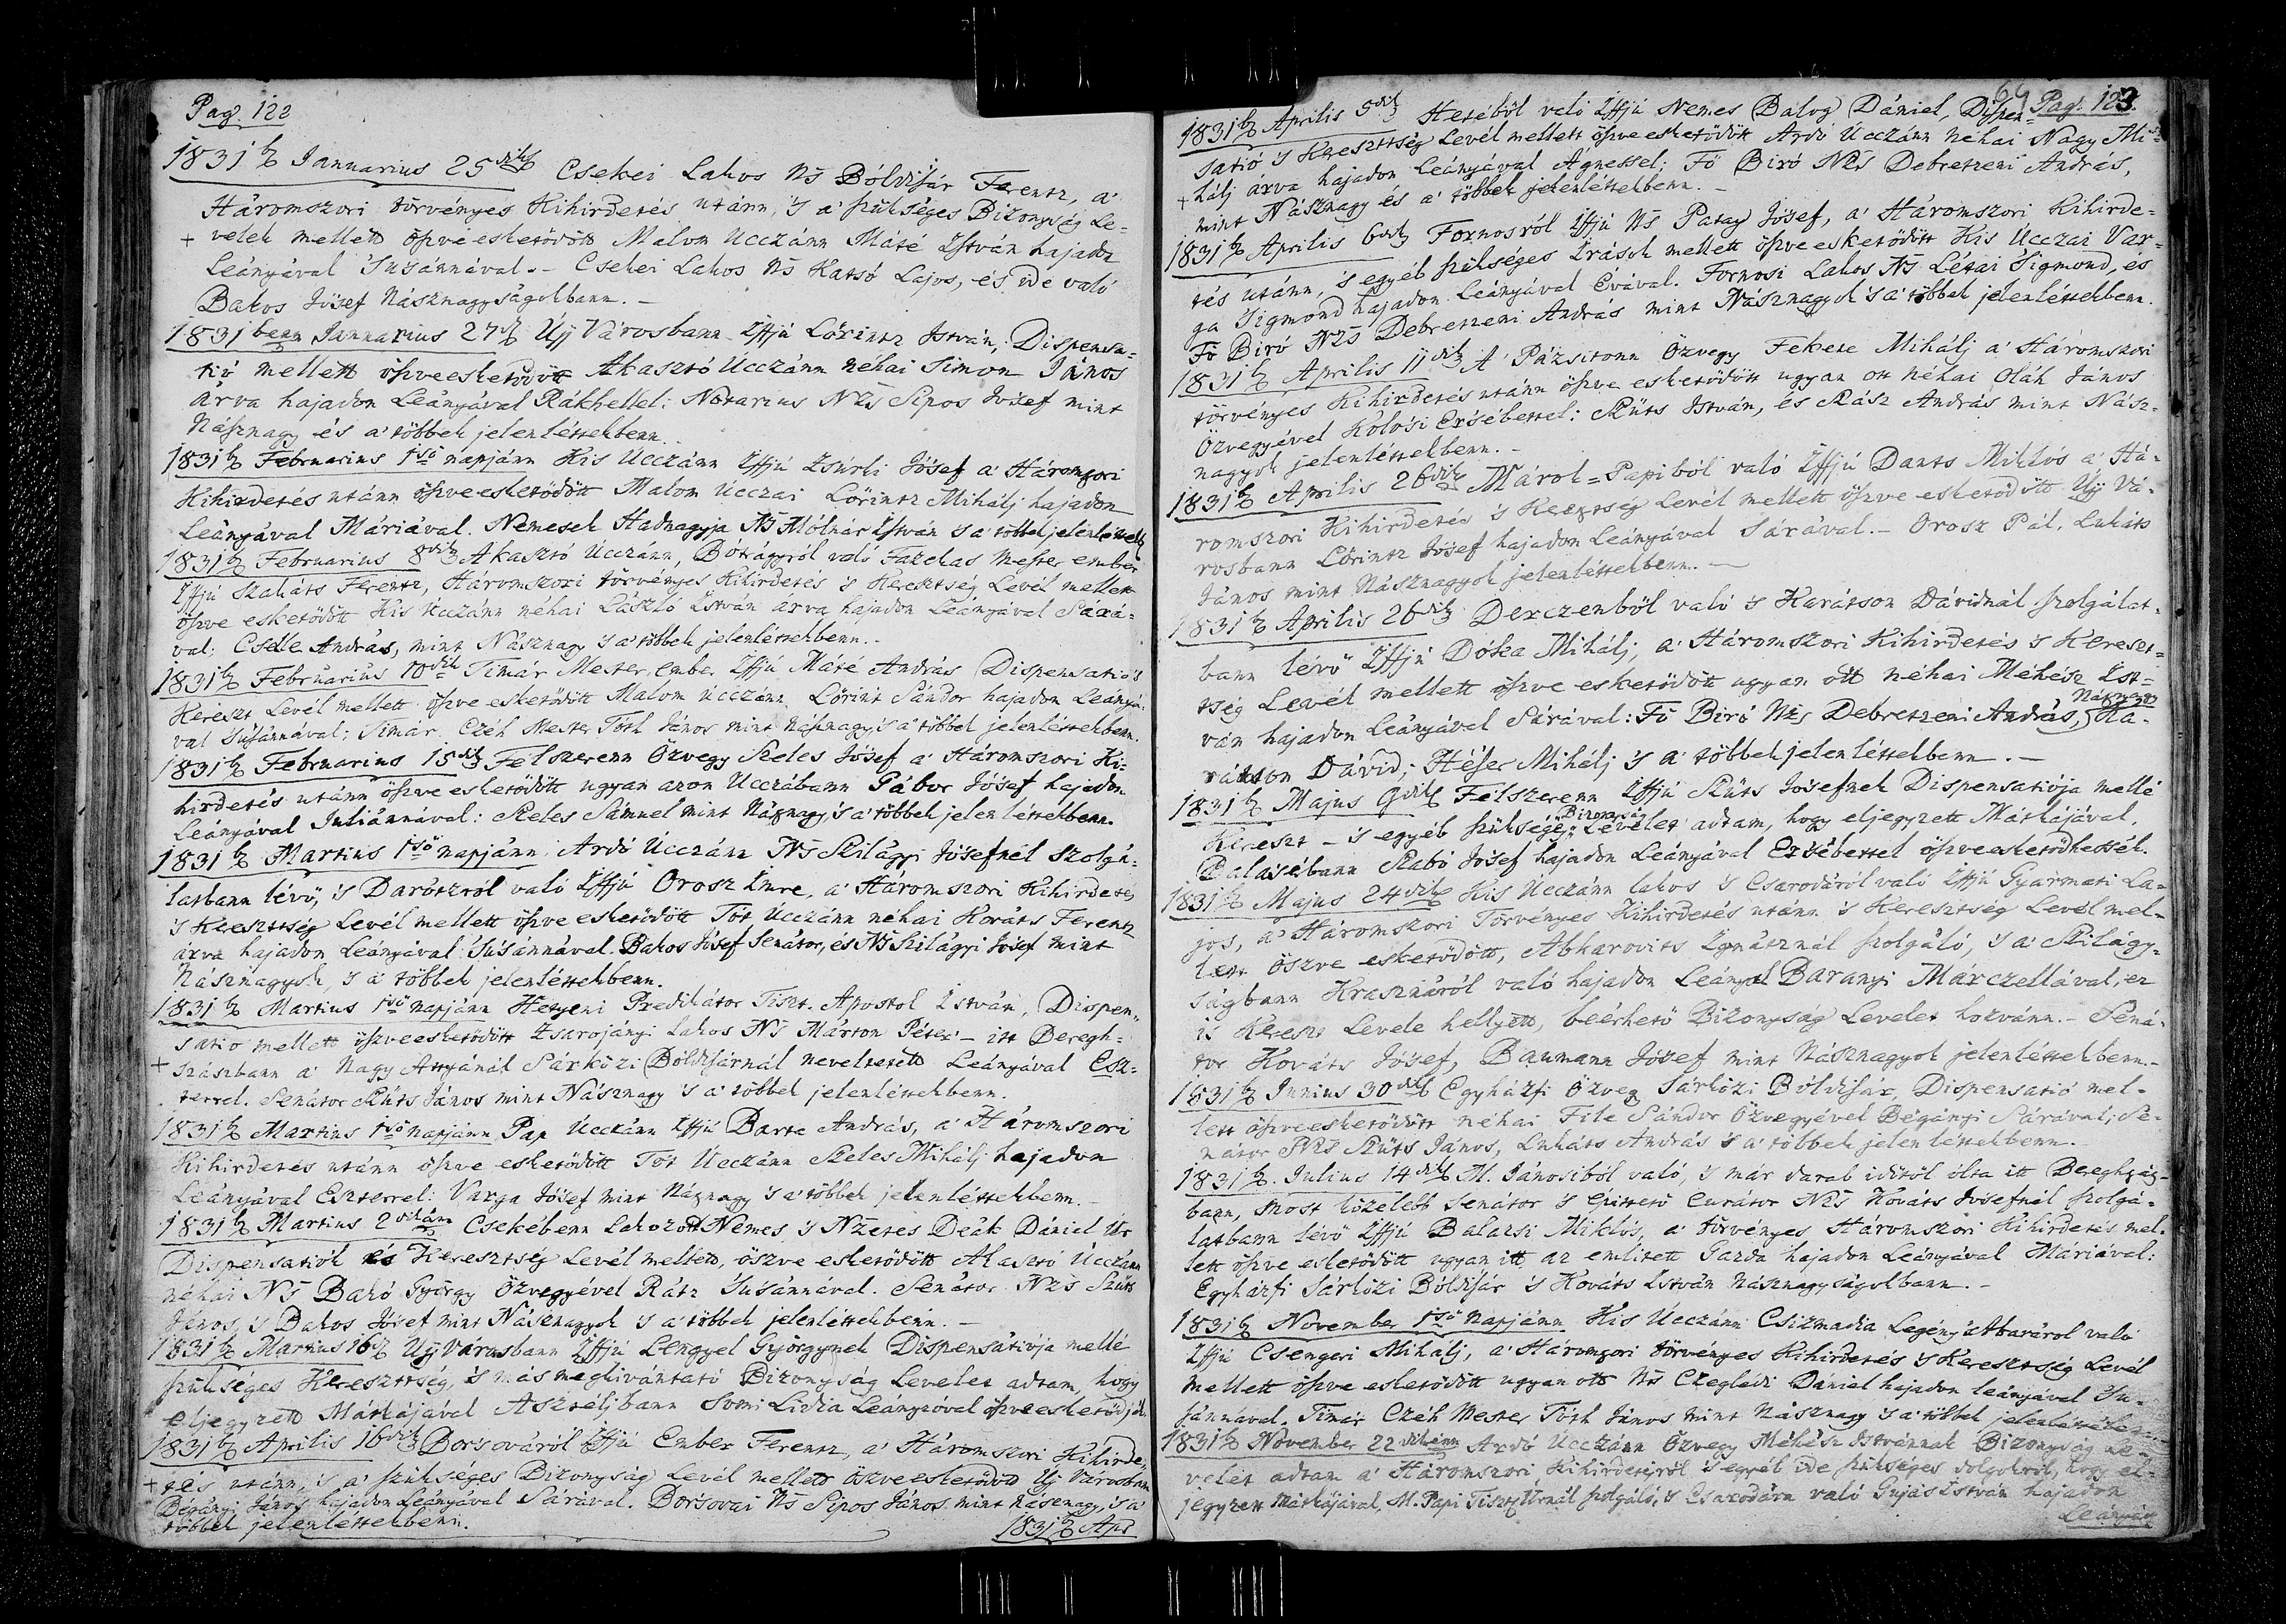 Pag. 122
1831b. Januarius 25dik Csekei Lakos Ns Bóldisár Ferentz, a'
Háromszori törvényes Kihirdetés utánn, 's a' szükséges Bizonyság Le-
+ velek mellett öszve esketödött Malom Ucczánn Máté István hajadon
Leányával 'Su'sánnával. - Csekei Lakos Ns Katsó Lajos, és ide való
Bakos Jósef Násznagyságokbann. -
1831benn Januarius 27. Új Városbann Iffjú Lörintz István, Dispensa-
tió mellett öszveesketödött Akasztó Ucczánn néhai Simon János
árva hajadon Leányával Rákhellel: Notarius Nzs Sipos Jósef mint
Násznagy és a' többek jelenléttekbenn.
1831b. Februarius 1sö napjánn Kis Ucczánn Iffjú Isúrki Jósef a' Háromszori
Kihirdetés utánn öszveesketödött Malom Ucczai Lörintz Mihálj hajadon
Leányával Máriával. Nemesek Hadnagyja Ns Mólnár István 's a' többek jelenléttek
1831b. Februarius 8dik Akasztó Ucczánn, Bótrágyról való Fazekas Mester ember
Iffjú Szakáts Ferentz, Háromszori törvényes Kihirdetés 's Keresztség Levél mellett
öszve esketödött Kis Ucczánn néhai László István árva hajadon Leányával Sárá-
val: Cséle András, mint Násznagy 's a' többek jelenléttekbenn.
1831b. Februarius 10dik Timár Mester ember Iffjú Máté András Dispensatió 's
Kereszt Levél mellett öszve esketödött Malom Ucczánn Lörint Sándor hajadon Leányá-
val 'Su'sánnával; Timár Czéh Mester Tóth János mint Násznagy, 's a' többek jelenléttekbenn.
1831b. Februarius 15dik Felszerenn Özvegy Szeles Jósef a' Háromszori Ki-
hirdetés utánn öszve esketödött ugyan azon Ucczábann Gábor Jósef hajadon
Leányával Juliánnával: Szeles Sámuel mint Násznagy, 's a' többek jelenléttekbenn.
1831b. Martius 1sö napjánn Ardó Ucczánn Ns Szilágyi Jósefnél szolgá-
latbann lévö, 's Darótzról való Iffjú Orosz Imre, a' Háromszori Kihirdetés
's Keresztség Levél mellett öszve esketödött Tót Ucczánn néhai Kováts Ferentz
árva hajadon Leányával 'Su'sánnával. Bakos Jósef Senátor, és Ns Szilágyi Jósef mint
Násznagyok, 's a' többek jelenléttekbenn.
1831b. Martius 1sö napjánn Hetyeni Predikátor Tiszt. Apostol István, Dispen-
satio mellett öszveesketödött Isarojányi Lakos Ns Márton Péter - itt Beregh-
+ szászbann a' Nagy Attyánál Sárközi Bóldisárnál neveltetett Leányával Esz-
terrel. Senátor Szüts János mint Násznagy 's a' többek jelenléttekbenn.
1831b. Martius 1sö napjánn Pap Ucczánn Iffjú Barta András, a' Háromszori
Kihirdetés utánn öszve esketödött Tót Ucczánn Szeles Mihálj hajadon
Leányával Eszterrel: Varga Jósef mint Násznagy 's a' többek jelenléttekbenn. -
1831b. Martius 2dikánn Csekébenn Lakozott Nemes, 's Nzetes Deák Dániel Úr
Dispensatiók és Keresztség Levél mellett, öszve esketödött Akasztó Ucczánn
néhai Ns Bakó György Özvegyével Rátz 'Su'sánnával. Senátor Nzs Szüts
János, 's Bakos Jósef mint Násznagyok 's a' többek jelenléttekbenn. -
1831b. Martius 16. Új Városbann Iffjú Lengyel Györgynek Dispensatiója mellé
szükséges Keresztség, 's más megkivántató Bizonyság Levelet adtam, hogy
eljegyzett Mátkájával Asztéljbann Somi Lidia Leányzóval öszveesketödjék.
1831b. Aprilis 16dik Borsováról Iffjú Ember Ferentz, a' Háromszori Kihirde-
+ tés utánn, 's a' szükséges Bizonyság Levél mellett öszveesketödött Új Városbann
Bégányi János hajadon Leányával Sárával. Borsovai Ns Sipos János mint Násznagy, 's a'
többek jelenléttekbenn.
1831b. Apr
69 Pag. 123.
1831b. Aprilis 5dik Hetéböl való Iffjú Nemes Balog Dániel, Dispen-
satió 's Keresztség Levél mellett öszveesketödött Ardó Ucczánn néhai Nagy Mi-
+ hálj árva hajadon Leányával Ágnessel; Fö Biró Nzs Debretzeni András,
mint Násznagy és a' többek jelenléttekbenn. -
1831b. Aprilis 6dik Fornosról Iffjú Ns Patay Jósef, a' Háromszori Kihirde-
tés utánn, 's egyéb szükséges Irások mellett öszve esketödött Kis Ucczai Var-
ga 'Sigmond hajadon Leányával Évával. Fornosi Lakos Ns Létai 'Sigmond, és
Fö Biró Nzs Debretzeni András mint Násznagyok 's a' többek jelenléttekbenn.
1831b. Aprilis 11dik A' Pázsitonn Özvegy Fekete Mihálj a' Háromszori
törvényes Kihirdetés utánn öszve esketödött ugyan ott néhai Oláh János
Özvegyével Kólósi Ersébettel: Szüts István, és Szász András mint Nász-
nagyok jelenléttekbenn. -
1831b. Aprilis 26dik Márok-Papiból való Iffjú Dants Miklós a' Há-
romszori Kihirdetés 's Keresztség Levél mellett öszve esketödött Új Vá-
rosbann Lörintz Jósef hajadon Leányával Sárával. - Orosz Pál, Lukáts
János mint Násznagyok jelenléttekbenn. -
1831b. Aprilis 26dik Derczenböl való 's Karátson Dávidnál szolgálat-
bann lévö Iffjú Dóka Mihálj, a' Háromszori Kihirdetés 's Kereszt-
ség Levél mellett öszve esketödött ugyan ott néhai Méhész Ist-
ván hajadon Leányával Sárával: Fö Biró Nzs Debretzeni András, Násznagy Ka-
rátson Dávid; Héser Mihálj 's a' többek jelenléttekbenn. -
1831b. Majus 9dik Felszerenn Iffjú Szüts Jósefnek Dispensatiója mellé
Kereszt - 's egyéb szükséges Bizonyság Levelet adtam, hogy eljegyzett Mátkájával,
Dalasébann Szabó Jósef hajadon Leányával Ersébettel öszveesketödhessék.
1831b. Majus 24dik Kis Ucczánn lakos 's Csarodáról való Iffjú Gyarmati La-
jos, a' Háromszori Törvényes Kihirdetés utánn 's Keresztség Levél mel-
lett öszve esketödött, Abkarovits Ignátznál szolgáló, 's a' Szilágy-
ságbann Krasznáról való hajadon Leányal Baranyi Márczellával, ez
is Kereszt Levele hellyett, beérhetö Bizonyság Levelet hozvánn. - Sená-
tor Kováts Jósef, Baumann Jósef mint Násznagyok jelenléttekbenn. -
1831b. Junius 30dik Egyházfi Özvegy Sárközi Bóldisár, Dispensatió mel-
lett öszveesketödött néhai File Sándor Özvegyével Bégányi Sárával; Se-
nátor Nzs Szüts János, Lukáts András 's a' többek jelenléttekbenn. -
1831b. Julius 14dik M. Jánosiból való, 's már darab idötöl ólta itt Beeghszász-
bann, most közelebb Senátor 's épittetö Curátor Nzs Kováts Jósefnél szolgá-
latbann lévö Iffjú Balazsi Miklós, a' törvényes Háromszori Kihirdetés mel-
lett öszve esketödött ugyan itt az emlitett Gazda hajadon Leányával Máriával:
Egyházfi Sárközi Bóldisár 's Kováts István Násznagyságokbann. -
1831b. November 1sö Napjánn Kis Ucczánn Csizmadia Legény Atbaráról való
Iffjú Csengeri Mihálj, a' Háromszori törvényes Kihirdetés 's Keresztség Levél
mellett öszve esketödött ugyan ott Ns Czeglédi Dániel hajadon leányával 'Su-
sánnával. Timár Czéh Mester Tóth János mint Násznagy 's a' többek jelenléttekbenn.
1831b. November 22dikénn Ardó Ucczánn Özvegy Méhész Istvánnak Bizonyság Le-
velet adtam a' Háromszori Kihirdetésröl 's egyéb ide szükséges dolgokról, hogy el-
jegyzett Mátkájával, M. Papi Tiszt. Úrnál szolgáló, 's Csarodára való Gujás István hajadon
Leányáv